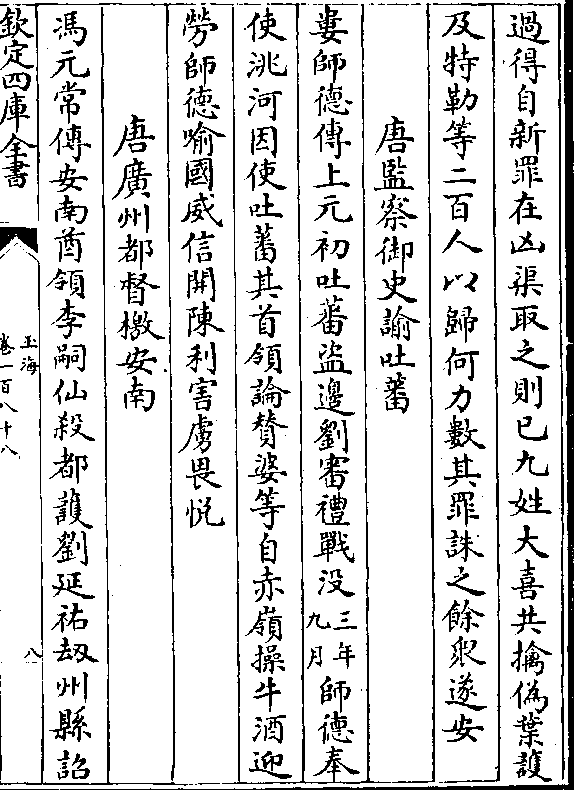 過得自新罪在凶渠取之則已九姓大喜共擒偽葉護
及特勒等二百人以歸何力數其罪誅之餘衆遂安
唐監察御史諭吐蕃
婁師德傳上元初吐蕃盜邊劉審禮戰没三年九月師德奉
使洮河因使吐蕃其首領論贊婆等自赤嶺操牛酒迎
勞師德喻國威信開陳利害虜畏悅
唐廣州都督檄安南
馮元常傳安南酋領李嗣仙殺都護劉延祐刼州縣詔
欽定四庫全書
玉海
卷一百八十八
八